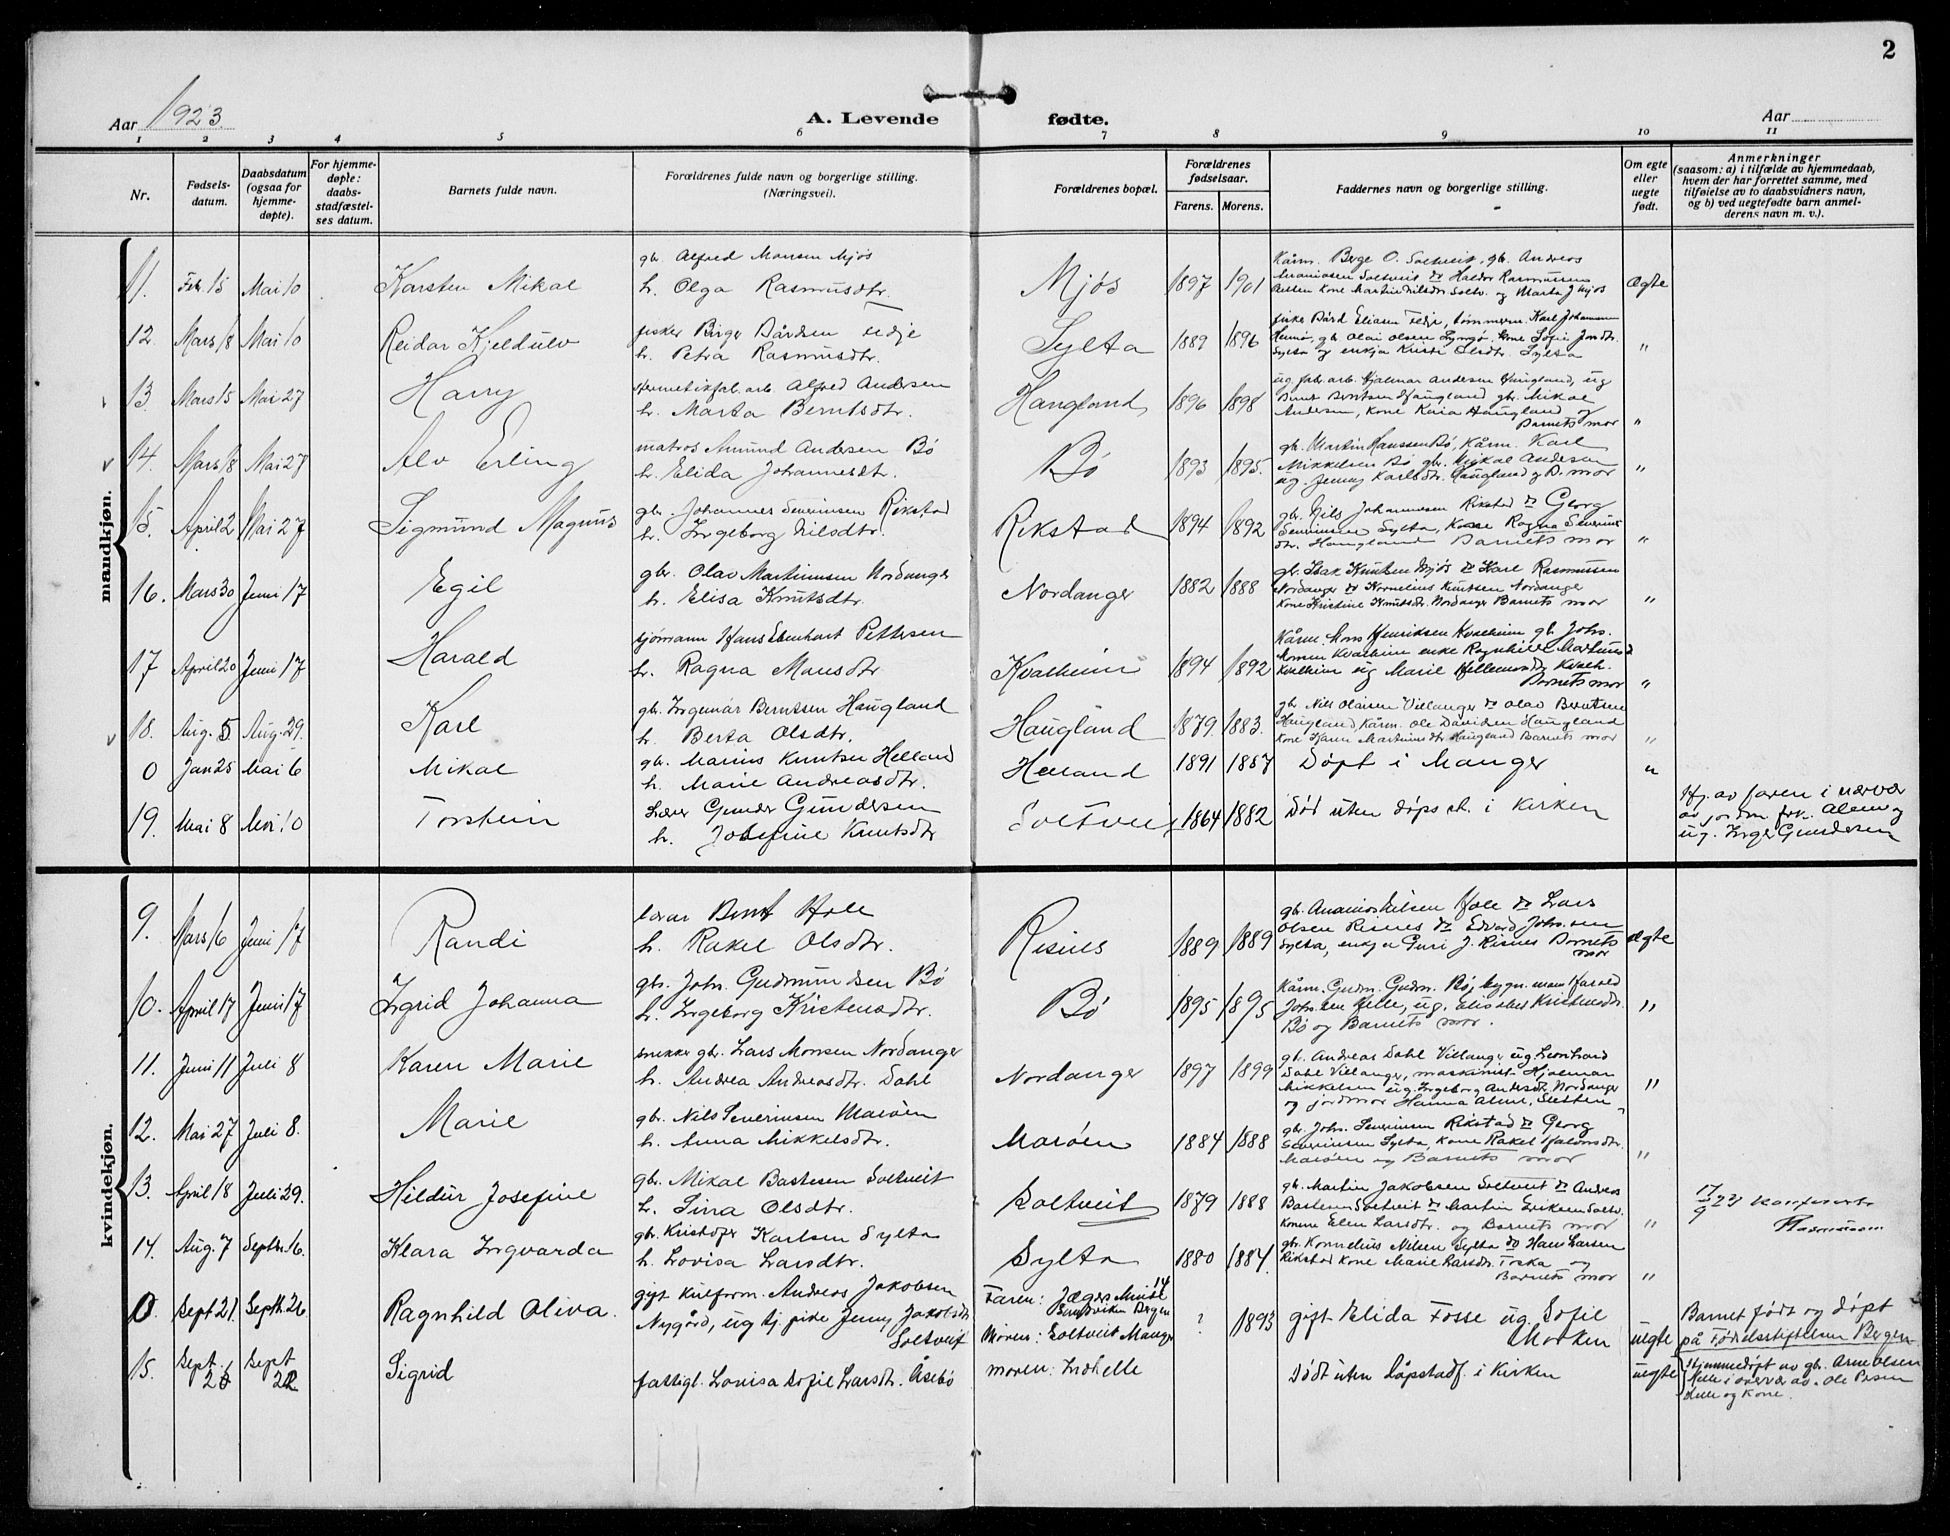 2
Aar 1923.
A. Levende fødte.
Aar
1 2 3 4 5 6 7 8 9 10 11
Nr.
Fødsels-datum.
Daabsdatum (ogsaa for hjemme-døpte).
For hjemme-døpte: daabs-stadfæstel-ses datum.
Barnets fulde navn.
Forældrenes fulde navn og borgerlige stilling. (Næringsvei).
Forældrenes bopæl.
Forældrenes fødselsaar.
Farens. Morens.
Faddernes navn og borgerlige stilling.
Om egte eller uegte født.
Anmerkninger
(saasom: a) i tilfælde av hjemmedaab,
hvem der har forrettet samme, med
tilføielse av to daabsvidners navn,
og b) ved uegtefødte barn anmel-
derens navn m. v.).
mandkjøn.
gb. Alfred Monsen Mjøs
11. Feb. 15 Mai 10 Karsten Mikal h. Olga Rasmusdtr. Mjøs 1897 1901 Ægte
Kårm. Berge O. Soltveit, gb. Andreas
Ananiasen Soltveit do Haldor Rasmussen
kone Martine Nilsdtr. Soltv. og Marta J. Mjøs
12. Mars 18 Mai 10 Reidar Kjeldulv fisker Birger Bårdsen Fedje
h. Petra Rasmusdtr. Sylta 1889 1896 "
fisker Bård Eliasen Fedje, tømmerm. Karl Johannsen
gb. Olai Olsen Lyngø, kone Sofie Jonsdtr.
Sylta og enkja Kristi Olsdtr. Sylta
13. Mars 15 Mai 27 Harry Hermetikfab. arb. Alfred Andersen
h. Marta Berntsdtr. Haugland 1896 1898 "
ug. fabr. arb. Hjalmar Andersen Haugland, ug
Bernt Berntsen Haugland gb. Mikal
Andersen, kone Kaia Haugland og
Barnets mor
14. Mars 18 Mai 27 Alv Erling matros Amund Andersen Bø
h. Elida Johannesdt. Bø 1893 1895. "
gb. Martin Hanssen Bø, Kårm. Karl
Mikkelsen Bø gb. Mikal Andersen
ug. Jenny Karlsdtr. Haugland og B. mor
15. April 2 Mai 27 Sigmund Magnus gbr. Johannes Severinsen Rikstad
h. Ingeborg Nilsdtr. Rikstad 1894 1892 "
gb. Nils Johannesen Rikstad do Georg
Severinsen Sylta, Kone Ragna Severins
dtr. Haugland Barnets mor
16. Mars 30 Juni 17 Egil gbr. Olav Martinusen Nordanger
h. Elisa Knutsdtr. Nordanger 1882 1888 "
gb. Isak Knutsen Mjøs do Karl Rasmussen
Nordanger do Kornelius Knutsen Nordanger
Kone Kristine Knutsdtr. Nordanger Barnets mor
17 April 20 Juni 17 Harald sjømann Hans Ebenhart Pettersen
h. Ragna Monsdtr Kvalheim 1894 1892 "
Kårm. Mons Henriksen Kvalheim gb. Johs.
Monsen Kvalheim enke Ragnhild Martinusd
Kvalheim ug Marie Hellemsdtr Kvalh.
Barnets mor
18. Aug. 5 Aug. 29. Karl gb. Ingemar Berntsen Haugland
h. Berta Olsdtr. Haugland 1879 1883. "
gb. Nils Olaisen Villanger do Olav Berntsen
Haugland, Kårm. Ole Davidsen Haugland
Kone Karen Martinusdtr Haugland Barnets mor
0 Jan 25 Mai 6 Mikal gb. Marius Knutsen Helland
h. Marie Andreasdtr. Helland 1891 1887 Døpt i Manger "
19. Mai 8 Mai 10 Torstein Lærer Gunder Gundersen
h. Josefine Knutsdtr Soltveit 1864 1882 Død uten døpsst. i Kirken
Hj. av faren i nærvær
av jordm. frk. Alme og
ug. Inger Gundersen
kvindekjøn.
9. Mars 6 Juni 17 Randi lærar Bernt Hole
h. Rakel Olsdtr. Risnes 1889 1889 ægte
gb. Ananias Nilsen Hole do Lars
Olsen Risnes do Edvard Johnsen
Sylta, enkja Guri J. Risnes Barnets
mor
10. April 17 Juni 17 Ingrid Johanna gb. Johs. Gudmundsen Bø
h. Ingeborg Kristensdtr. Bø 1895 1895 "
Kårm. Gudm. Gudm. Bø, bygn. mann Harald
Johnsen Helle, ug. Elisabet Kristensdtr.
Bø og Barnets mor.
11. Juni 11 Juli 8 Karen Marie snekker gb. Lars Monsen Nordanger
h. Andrea Andreasdtr. Dahl Nordanger 1897 1899 "
gb. Andreas Dahl Villanger ug. Leonhard
Dahl Villanger, maskinist Hjalmar
Mikkelsen ug. Ingeborg Andersdtr. Nordanger
og jordmor Hanna Alme, Sletten
12. Mai 27 Juli 8. Marie gb. Nils Severinsen Marøen
h. Anna Mikkelsdtr. Marøen 1884 1888 "
gb. Johs. Severinsen Rikstad do Georg
Severinsen Sylta, Kone Rakel
Marøen og Barnets mor
13. April 18 Juli 29. Hildur Josefine gb. Mikal Bastesen Soltveit
h. Sina Olsdtr. Soltveit 1879 1888 "
gb. Martin Jakobsen Soltveit do Andreas
Bastesen Soltveit do Martin Eriksen Soltv.
Konene Elen Larsdtr. og Barnets mor
17/9 23
Rasmussen
14. Aug. 7 Septbr. 16. Klara Ingvarda gb. Kristofer Karlsen Sylta
h. Lovisa Larsdtr. Sylta 1880 1884. "
gb. Kornelius Nilsen Sylta do Hans Larsen
Rikstad Kone Marie Larsdtr. Toska og
Barnets mor
0. Sept 21. Septb. 26 Ragnhild Oliva. gift kulform. Andreas Jakobsen
Nygård, ug tj. pike Jenny Jakobsdtr
Soltveit
Faren: Jægers Minde 14
Sandviken Bergen
Moren: Soltveit Manger
? 1893 gift Elida Fosse ug. Sofie
Morken uegte
Barnet født og døpt
på Fødselsstiftelsen Bergen
15. Sept. 26 Sept 22 Sigrid fattigl. Lovisa Sofie Larsdt. Åsebø moren: Indhelle
Dødt uten Dåpstadf. i Kirken uegte
Hjemmedøpt av gb. Arne Olsen
Helle i nærvær av Ole
Helle og Kone.